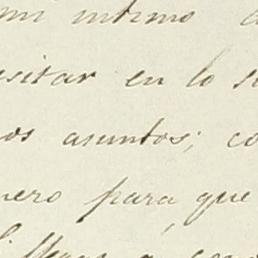 mi intimo
sitar en lo s
os asuntos; co
nero para que
llegas a